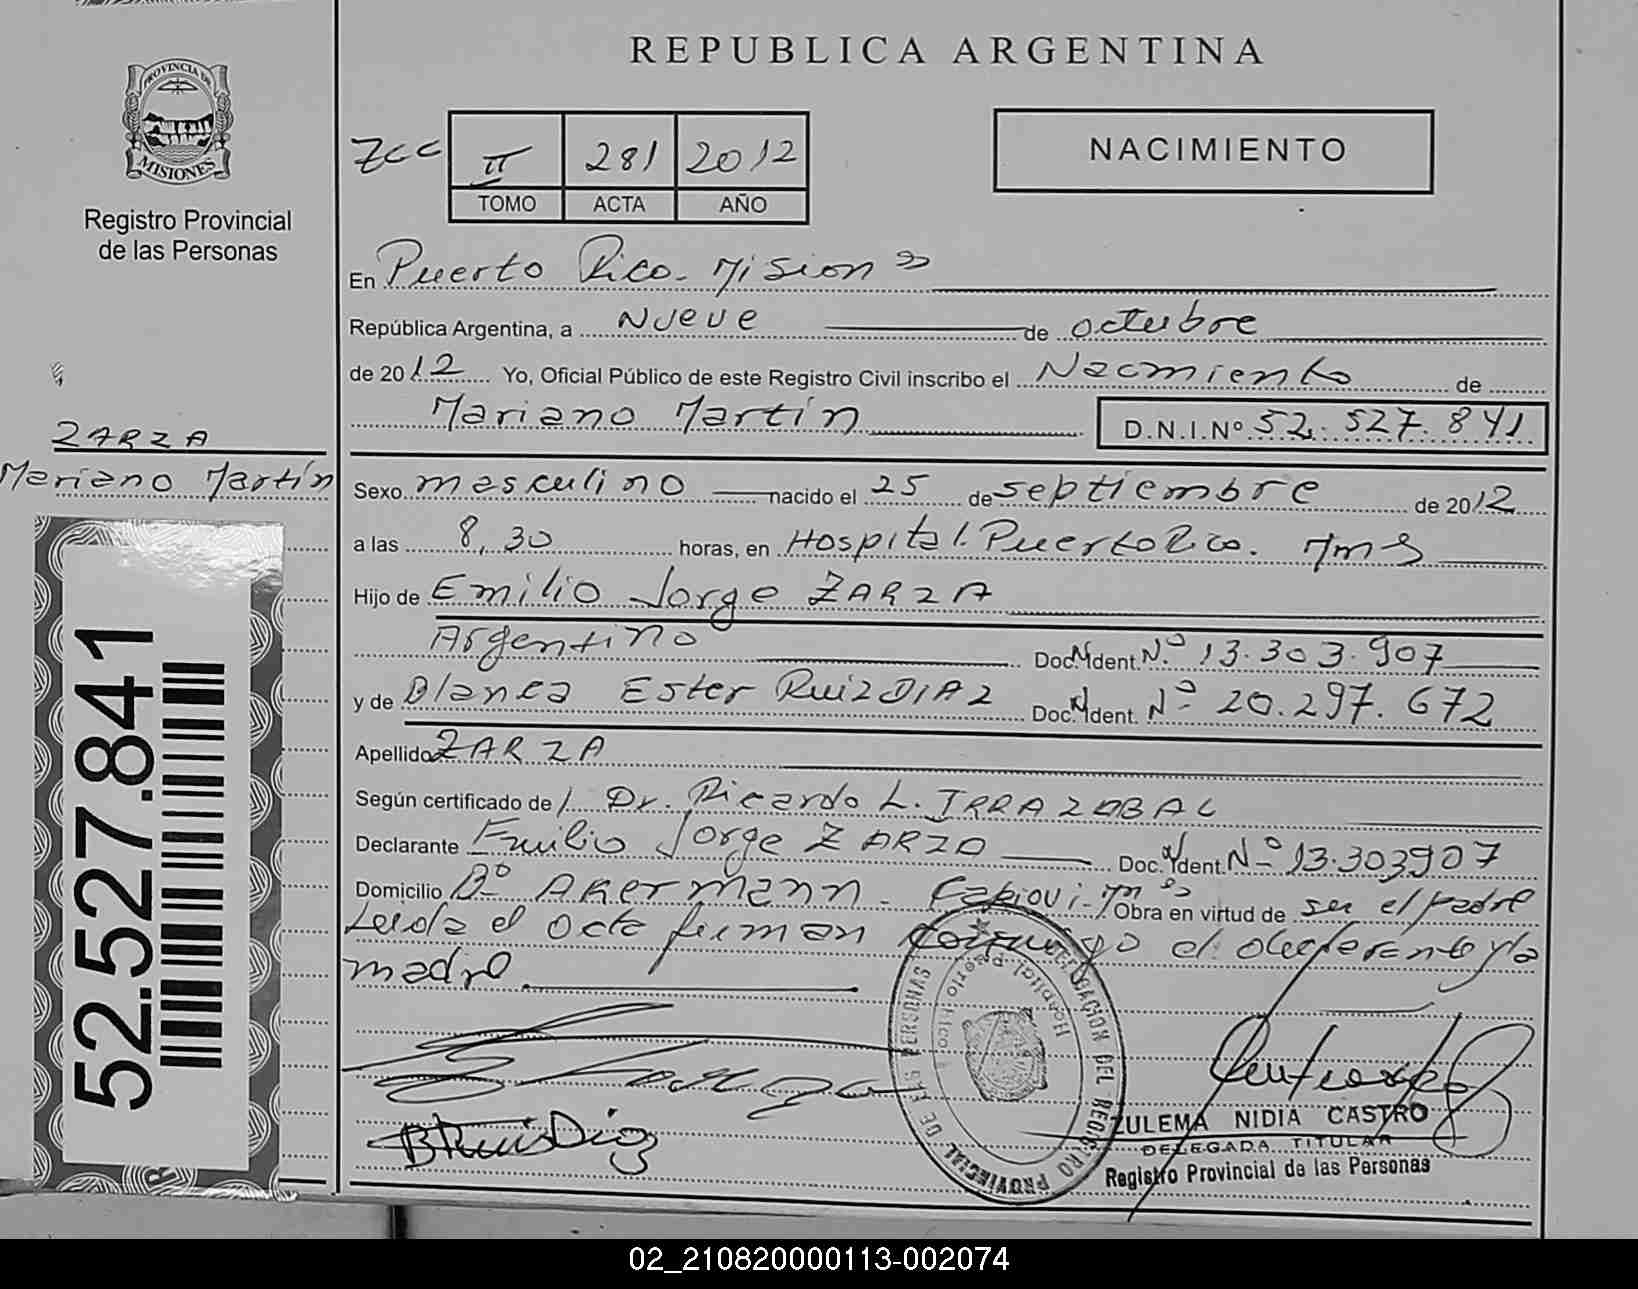 REPUBLICA ARGENTINA
PROVINCIA DE
MISIONES
Registro Provincial
de las Personas
NACIMIENTO
7cc II 281 2012
TOMO ACTA AÑO
En Puerto Rico. Misiones
República Argentina, a Nueve de octubre
de 2012 Yo, Oficial Público de este Registro Civil inscribo el Nacimiento de
Mariano Martín D.N.I.Nº 52.527.841
ZARZA
Mariano Martín
Sexo masculino nacido el 25 de septiembre de 2012
a las 8,30 horas, en Hospital Puerto Rico. Mns
Hijo de Emilio Jorge ZARZA
Argentino Doc. Ident. Nº 13.303.907
y de Blanca Ester Ruiz DIAZ Doc. Ident. Nº 20.297.672
Apellido ZARZA
Según certificado de Dr. Ricardo L. IRRAZABAL
Declarante Emilio Jorge ZARZA Doc. Ident. Nº 13.303907
Domicilio Bº AKermann - Capiovi - Mnes Obra en virtud de ser el padre
Leida el acta firman conmigo el declarante y la
madre
52.527.841
B Ruis Diaz
DELEGACION DEL REGISTRO PROVINCIAL DE LAS PERSONAS
Hospital Puerto Rico
ZULEMA NIDIA CASTRO
DELEGADA TITULAR
Registro Provincial de las Personas
02_210820000113-002074